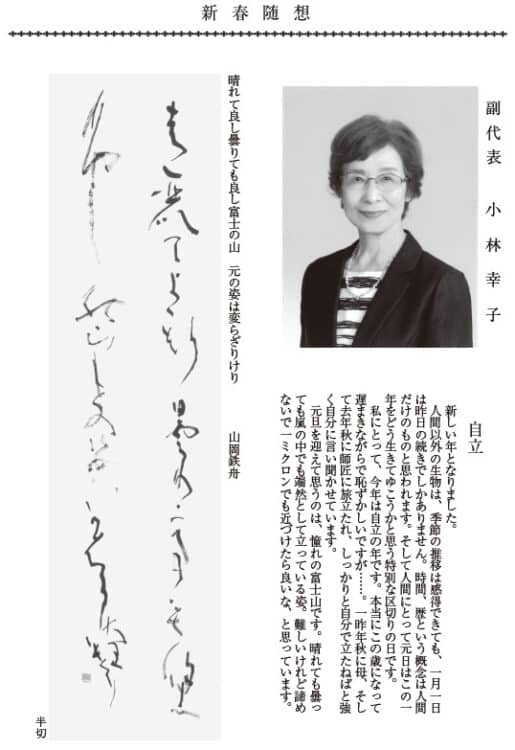 新春随想
副代表　小林幸子
自立
新しい年となりました。
人間以外の生物は、季節の推移は感得できても、一月一日
は昨日の続きでしかありません。時間、歴という概念は人間
だけのものと思われます。そして人間にとって元日はこの一
年をどう生きてゆこうかと思う特別な区切りの日です。
私にとって、今年は自立の年です。本当にこの歳になって
遅まきながらで恥ずかしいですが……。一昨年秋に母、そし
て去年秋に師匠に旅立たれ、しっかりと自分で立たねばと強
く自分に言い聞かせています。
元旦を迎えて思うのは、憧れの富士山です。晴れても曇っ
ても嵐の中でも端然として立っている姿。難しいけれど諦め
ないで一ミクロンでも近づけたら良いな、と思っています。
晴れて良し曇りても良し富士の山　元の姿は変らざりけり　山岡鉄舟
半切